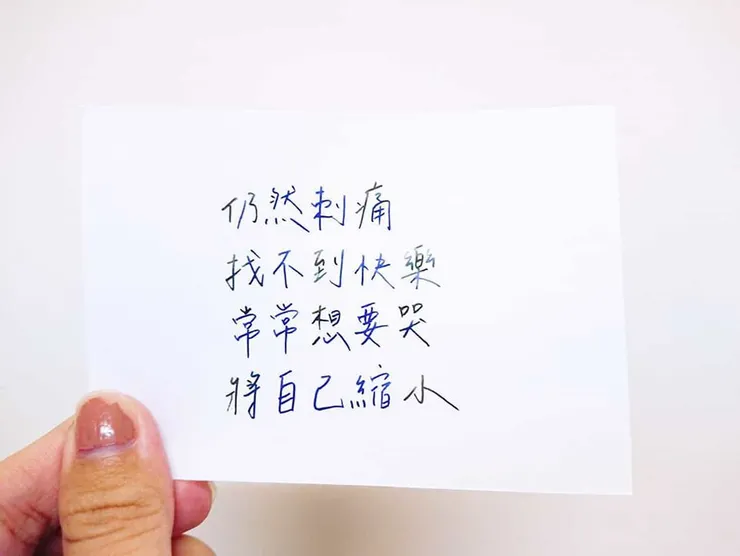 仍然刺痛
找不到快樂
常常想要哭
將自己縮小